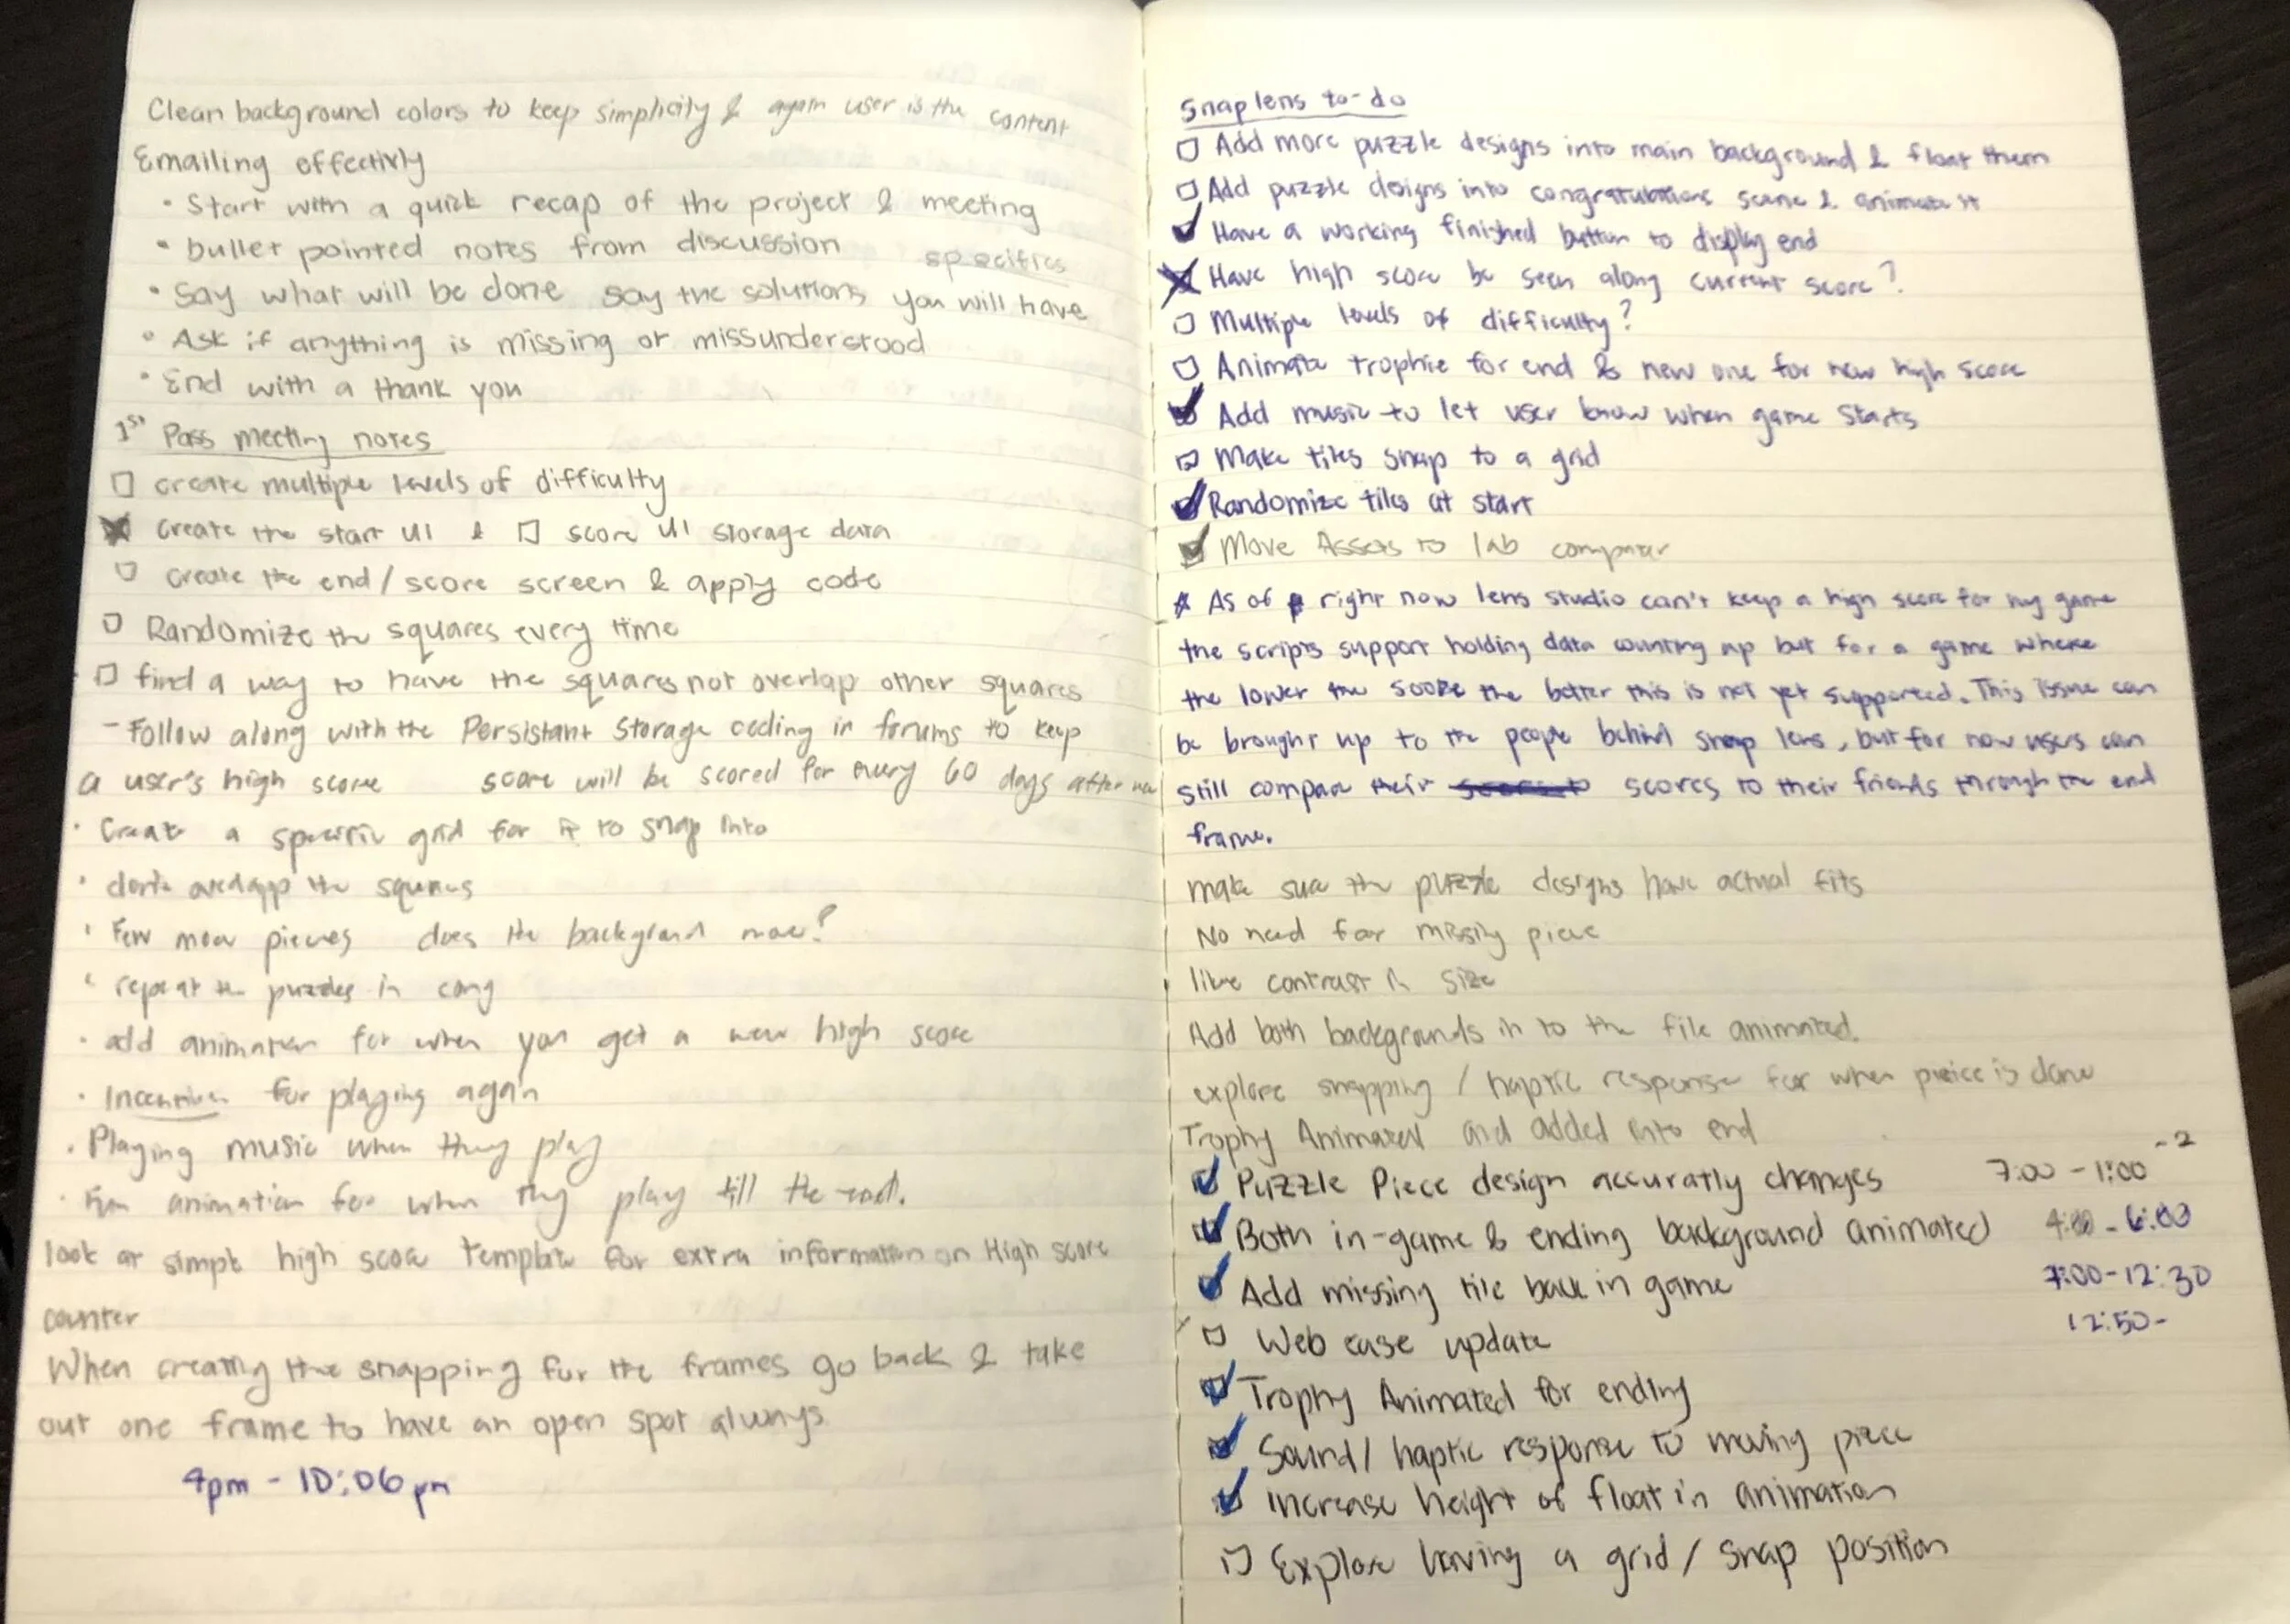 Clean background colors to keep simplicity & again user is the content
Emailing effectivly
• Start with a quick recap of the project & meeting
• bullet pointed notes from discussion
specifics
• Say what will be done say the solutions you will have
• Ask if anything is missing or missunderstood
• End with a thank you
1st Pass meeting notes
☐ create multiple levels of difficulty
☒ create the start UI & ☐ score UI storage data
☐ create the end/score screen & apply code
☐ Randomize the squares every time
☐ find a way to have the squares not overlap other squares
- Follow along with the Persistant Storage coding in forums to keep
a user's high score score will be scored for every 60 days after
• Create a specific grid for it to snap into
• don't overlapp the squares
• Few more pieces does the background move?
• repeat the puzzles in cong
• add animation for when you get a new high score
• Incentives for playing again
• Playing music when they play
• Fun animation for when they play till the end.
look at simple high score template for extra information on High score
counter
When creating the snapping for the frames go back & take
out one frame to have an open spot always
4pm - 10:06 pm
Snap lens to-do
☐ Add more puzzle designs into main background & float them
☐ Add puzzle designs into congratulations scene & animate it
☑ Have a working finished button to display end
☒ Have high score be seen along current score?
☐ Multiple levels of difficulty?
☐ Animate trophie for end & new one for new high score
☑ Add music to let user know when game starts
☑ Make tiles snap to a grid
☑ Randomize tiles at start
☑ Move Assets to lab computer
* As of right now lens studio can't keep a high score for my game
the scripts support holding data counting up but for a game where
the lower the score the better this is not yet supported. This issue can
be brought up to the people behind snap lens, but for now users can
still compare their scores to their friends through the end
frame.
make sure the puzzle designs have actual fits
No need for missing piece
like contrast in size
Add both backgrounds in to the file animated.
explore snapping / haptic response for when pieice is done
Trophy Animated and added into end
☑ Puzzle Piece design accuratly changes 7:00 - 1:00 -2
☑ Both in-game & ending background animated 4:00 - 6:00
☑ Add missing tile back in game 7:00-12:30
☐ Web ease update 12:50-
☑ Trophy Animated for ending
☑ Sound/ haptic response to moving piece
☑ increase height of float in animation
☐ Explore having a grid/ snap position